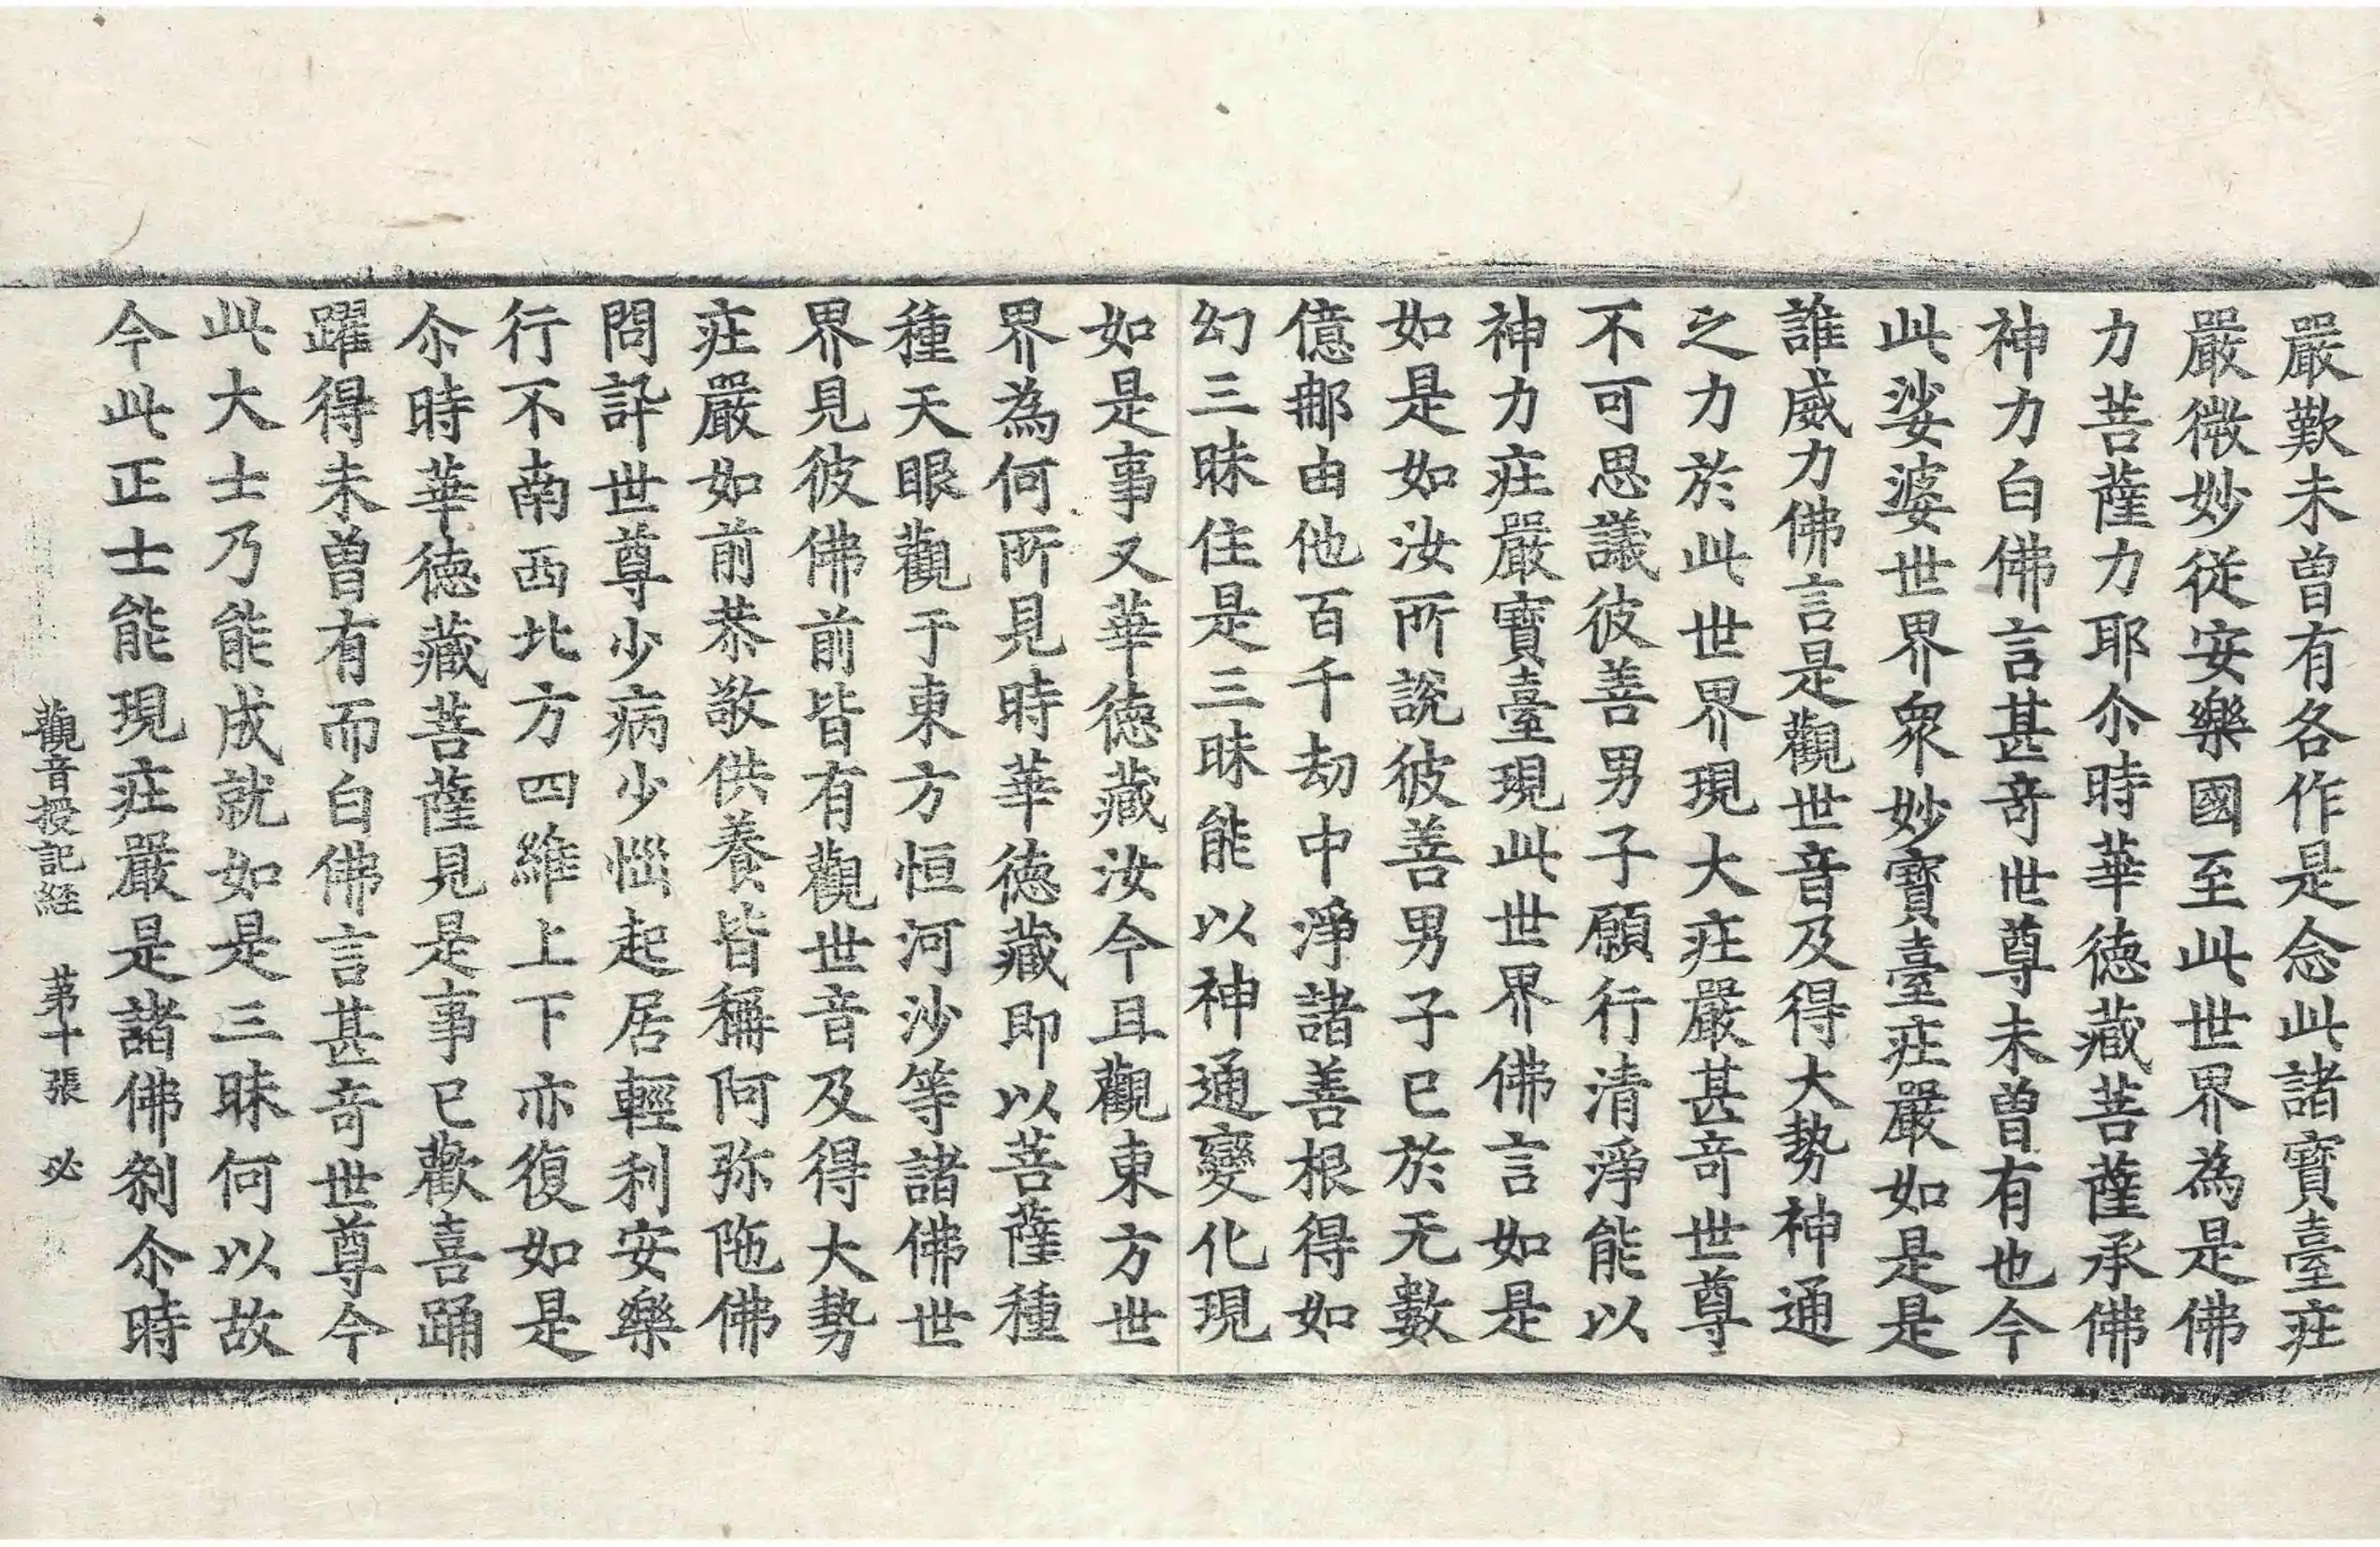 嚴歎未曾有各作是念此諸寶臺莊
嚴微妙從安樂國至此世界為是佛
力菩薩力耶尒時華德藏菩薩承佛
神力白佛言甚奇世尊未曾有也今
此娑婆世界衆妙寶臺莊嚴如是是
誰威力佛言是觀世音及得大勢神通
之力於此世界現大莊嚴甚奇世尊
不可思議彼善男子願行清淨能以
神力莊嚴寶臺現此世界佛言如是
如是如汝所說彼善男子已於无數
億那由他百千劫中淨諸善根得如
幻三昧住是三昧能以神通變化現
如是事又華德藏汝今且觀東方世
界為何所見時華德藏即以菩薩種
種天眼觀于東方恒河沙等諸佛世
界見彼佛前皆有觀世音及得大勢
莊嚴如前恭敬供養皆稱阿弥陁佛
問訊世尊少病少惱起居輕利安樂
行不南西北方四維上下亦復如是
尒時華德藏菩薩見是事已歡喜踊
躍得未曾有而白佛言甚奇世尊今
此大士乃能成就如是三昧何以故
今此正士能現莊嚴是諸佛刹尒時
觀音授記経 第十張 必